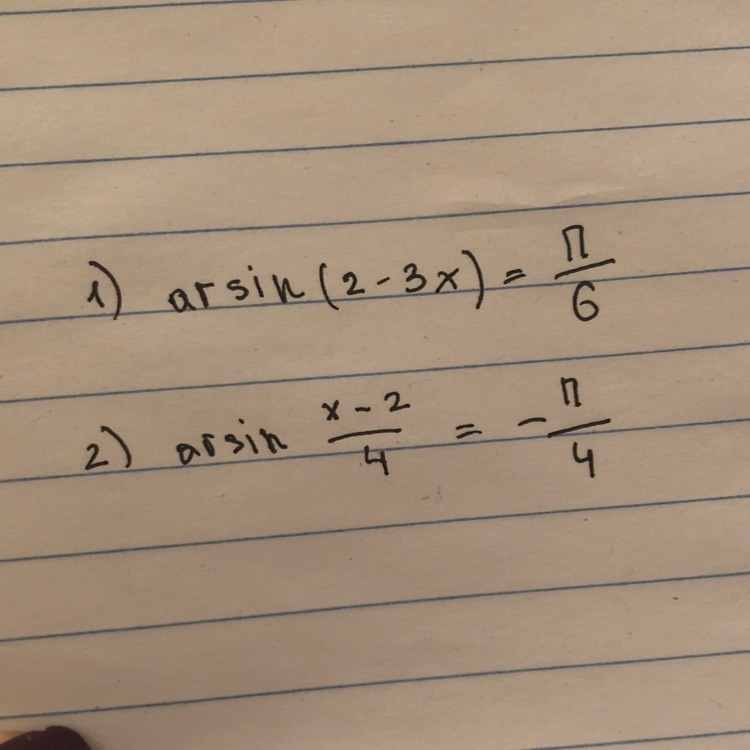 1) arsin(2-3x) = π/6
2) arsin (x-2)/4 = -π/4